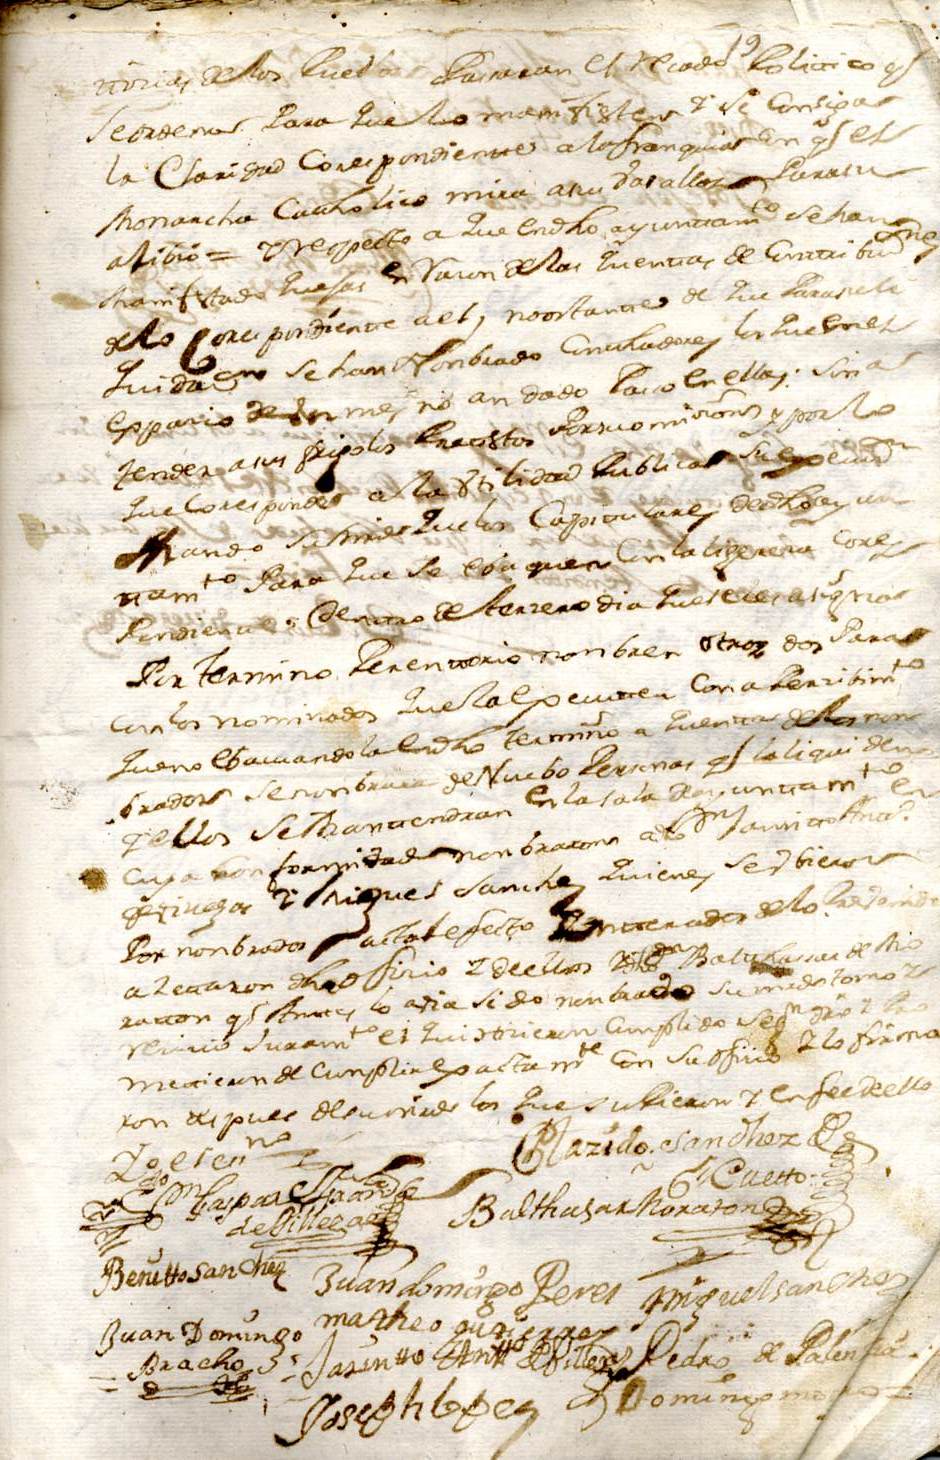 19
ttorias de los Pueblos Pasaran el recado Politico q̃
se ordenar Para que lo manifiesten Y se Consiga
la Claridad Corespondiente a la franquias con q̃ el
Monarcha Catholico mira a su Vasallos Para su
alibio = Y respecto a que en dho ayuntamto se han
manifestado quejas en Razon de las quentas de Contribuz.nes
de lo Corespondiente a el, no ostante de que Para su li
quidacion se han Nombrado Contadores, los que en el
espacio de un mes no an dado Paso en ellas. sin a
tender a sus fribolos Pretestos
que Coresponde a la Vtilidad Publica
Mando su mrd que los Capitulares de dho ayun
tamto Para que se ebaquen Con la ligereza Cores
Pondiente; Dentro de terzero dia que se les asigna
Por termino Perenttorio nombren otros dos Para
con los nominados que la executten Con aPerzibimto
que no Ebacuandola en dho termino a quenta de los nom
brados se nombrara de Nuebo Personas q̃ la liquiden
Y ellos se Manttendran en la sala de ayunttamto en
cuya Conformidad nombraron a Dn Jazintto Antº
Y Miguel Sanchez quienes se Vbieron
Por nombrados Para este efecto Entterados de lo
azettaron dho ofizio Y de ellos Balthassar de No
ratton q̃ Antes lo avia sido nombrado su mrd tomo Y
rezivio Juramto el qui hizieron Cumplido segn dro Y Pro
mettieron de Cumplir exactamte Con su ofizio Y lo firma
ron despues de su mrd los que supieron Y en fee de ello
Yo el essno =
Plazido Sanchez De
Cuetto
Dn Gaspar
de Villegas
Balthasar Noraton
Benitto Sanchez
Juan domingo Perez
Miguel Sanchez
Juan Domingo
Bracho
matheo gutierrez
Jazintto Antto de Villegas
Pedro de Palenzia
Joseph lopez
Domingo